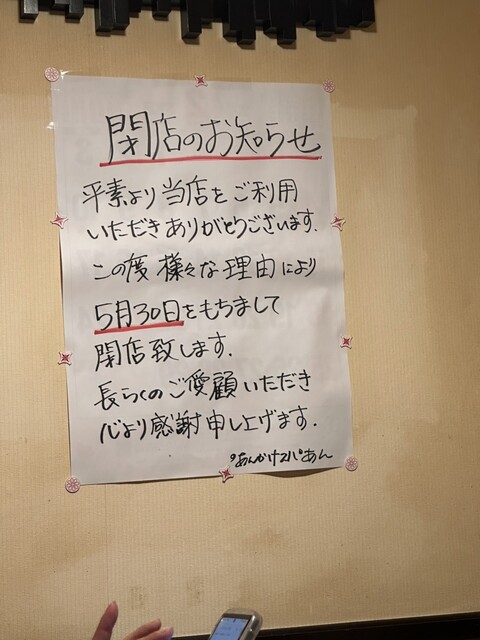 閉店のお知らせ
平素より当店をご利用
いただきありがとうございます.
この度様々な理由により
5月30日をもちまして
閉店致します.
長らくのご愛顧いただき
心より感謝申し上げます.
あんかけスパあん